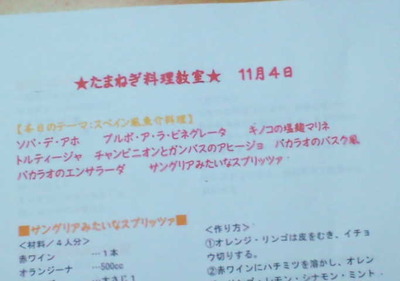 ★たまねぎ料理教室★ 11月4日
【本日のテーマ:スペイン風魚介料理】
ソパ・デ・アホ プルポ・ア・ラ・ビネグレータ キノコの塩麹マリネ
トルティージャ チャンピニオンとガンバスのアヒージョ バカラオのバスク風
バカラオのエンサラーダ サングリアみたいなスプリッツァ
■サングリアみたいなスプリッツァ■
<材料/4人分>
赤ワイン …1本
オランジーナ …500cc
…大さじ1
<作り方>
①オレンジ・リンゴは皮をむき、イチョ
ウ切りする。
②赤ワインにハチミツを溶かし、オレン
レモン・シナモン・ミント